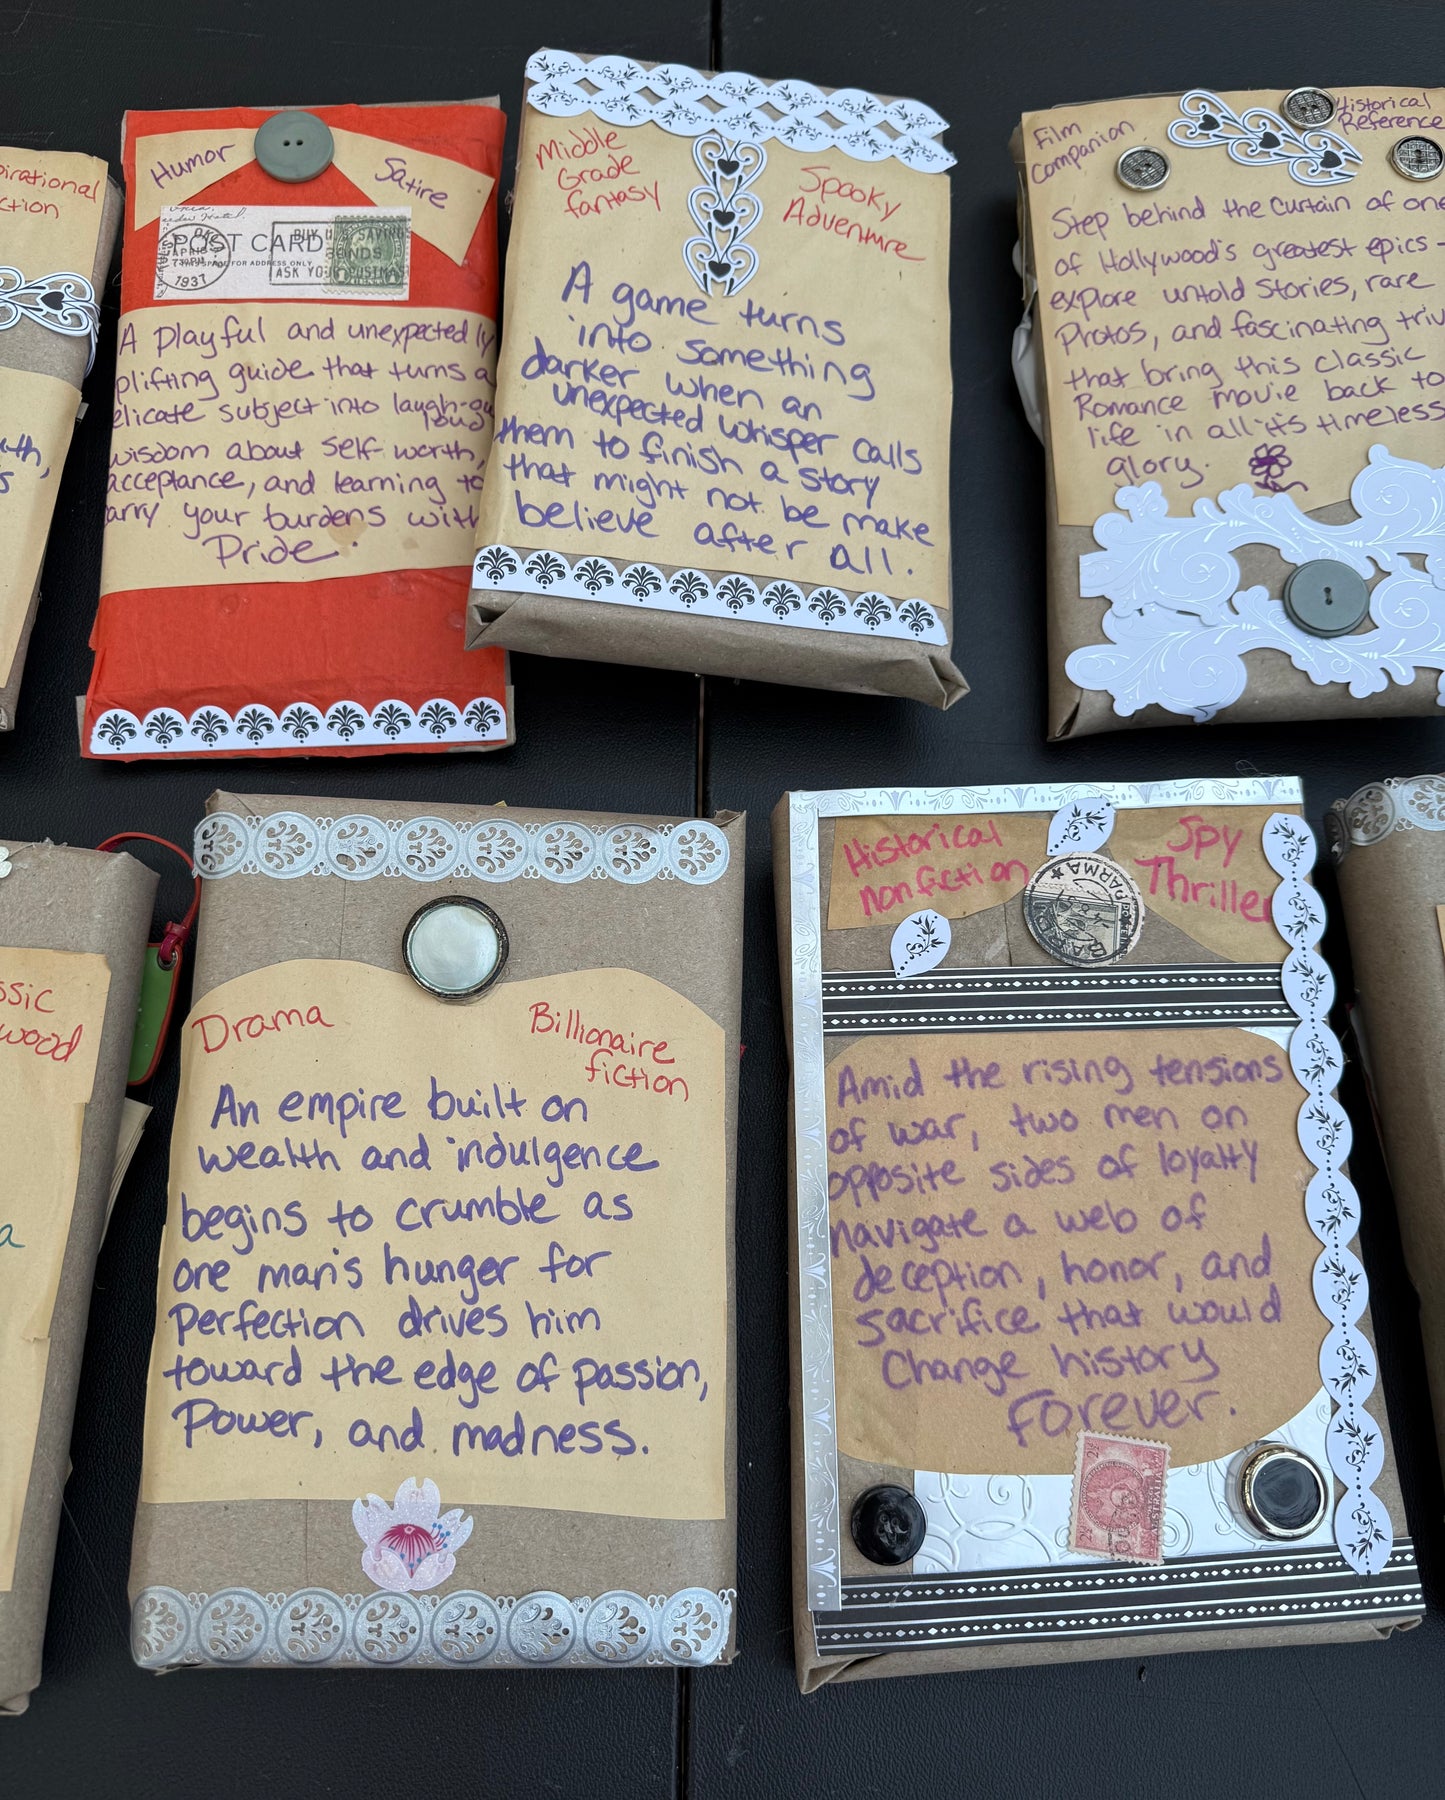 ction
Humor
Satire
POST CARD
BUY U.S. SAVING
BONDS
SPACE FOR ADDRESS ONLY
ASK YOUR POSTMAS
APR 15
1937
A Playful and unexpectedly
plifting guide that turns a
elicate subject into laugh-out
loud
wisdom about self-worth,
acceptance, and learning to
arry your burdens with
Pride.
Middle
Grade
fantasy
Spooky
Adventure
A game turns
into something
darker when an
unexpected whisper calls
them to finish a story
that might not be make
believe after all.
Film
Companion
Historical
Reference
Step behind the curtain of one
of Hollywood's greatest epics -
explore untold stories, rare
Photos, and fascinating triv
that bring this classic
Romance movie back to
life in all its timeless
glory.
ssic
wood
a
Drama
Billionaire
fiction
An empire built on
wealth and indulgence
begins to crumble as
one man's hunger for
Perfection drives him
toward the edge of passion,
Power, and madness.
Historical
nonfiction
Spy
Thriller
PARMA
Amid the rising tensions
of war, two men on
opposite sides of loyalty
navigate a web of
deception, honor, and
sacrifice that would
Change history
Forever.
2½
AUSTRALIA